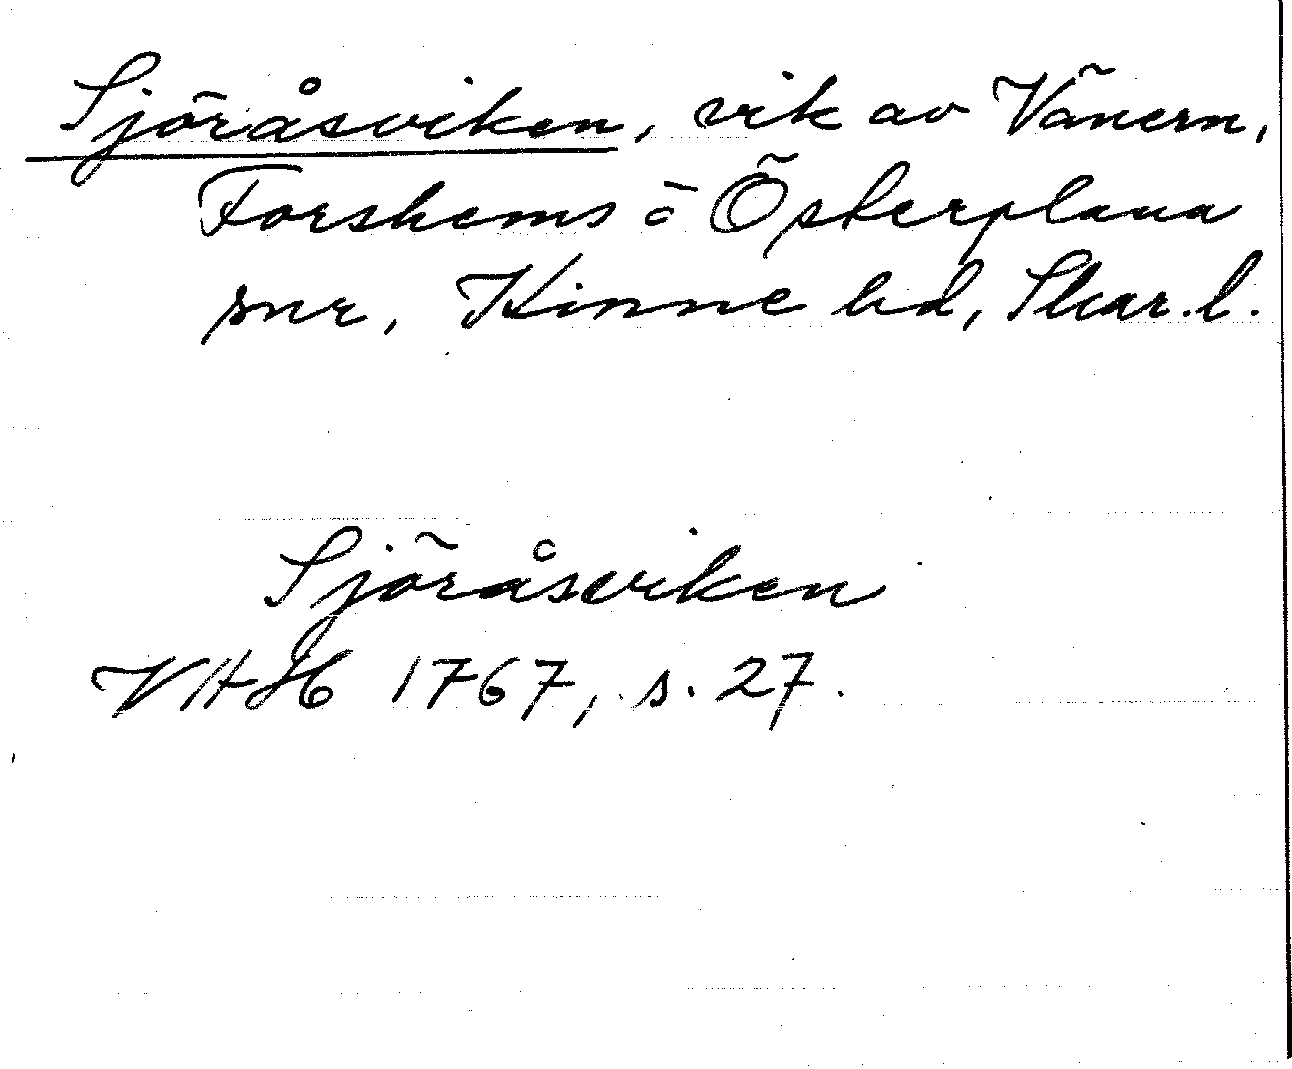 Sjöråsviken, vik av Vänern,
Forshems o Österplana
snr, Kinne hd, Skar. l.
Sjöråsviken
VHH 1767, s. 27.